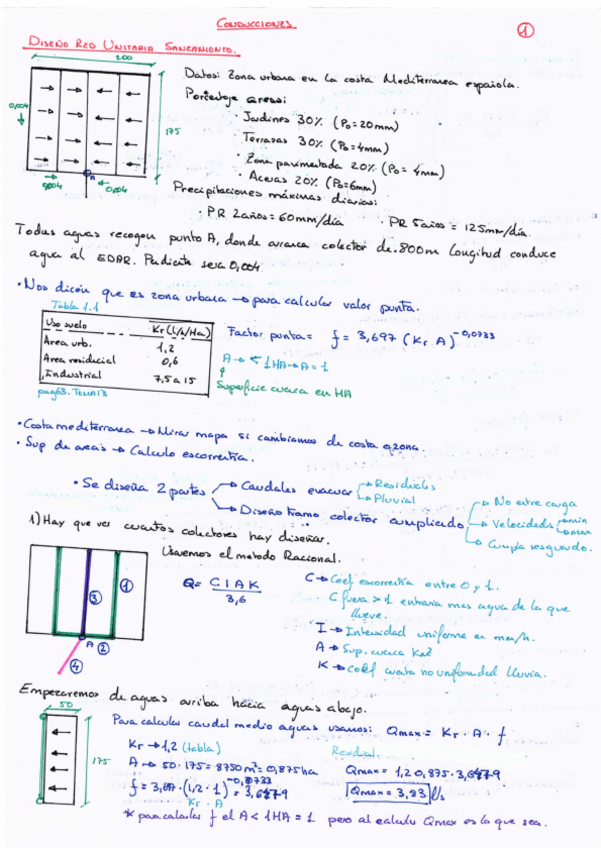 CONDUCCIONES
1
DISEÑO RED UNITARIA SANEAMIENTO.
200
0,004
175
A
0,004
0,004
Datos: Zona urbana en la costa Mediterranea española.
Porcentaje areas:
· Jardines 30% (Po=20mm)
· Terrazas 30% (Po=4mm)
· Zona pavimentada 20% (Po= 4mm)
· Aceras 20% (Po=6mm)
Precipitaciones máximas diarias:
· PR 2años = 60mm/día PR 5años = 125mm/día
Todas aguas recogen punto A, donde arranca colector de 800m longitud conduce
agua al EDAR. Pendiente sera 0,004
· Nos dicen que es zona urbana → para calcular valor punta.
Tabla 1.1
Uso suelo Kr(l/s/Ha)
Area urb. 1,2
Area residecial 0,6
Industrial 7,5 a 15
pag63. TEMA13
Factor punta = f = 3,697 (Kr.A)^-0,0733
A → < 1HA → A = 1
Superficie cuenca en HA
· Costa mediterranea → Mirar mapa si cambiamos de costa o zona.
· Sup de areas → Calculo escorrentia.
· Se diseña 2 partes
Caudales evacuar
Residuales
Pluvial
Diseño tramo colector cumpliendo
No entre carga
Velocidades
min
max
Cumpla resguardo.
1) Hay que ver cuantos colectores hay diseñar.
Usaremos el metodo Racional.
Q= C I A K / 3,6
C → Coef. escorrentia entre 0 y 1.
C fuera > 1 entraria mas agua de la que
llueve.
I → Intensidad uniforme en mm/h.
A → Sup. cuenca Km2
K → coef cuenta no uniformidad lluvia.
1
3
A
2
4
Empezaremos de aguas arriba hacia aguas abajo.
50
175
Para calcular caudal medio aguas usamos: Qmax = Kr · A · f
Kr → 1,2 (tabla)
Residual.
A → 50 · 175 = 8750 m² = 0,875 ha
Qmax = 1,2 · 0,875 · 3,6479
f = 3,697 · (1,2 · 1)^-0,0733 = 3,6479
Kr · A
Qmax = 3,83 l/s
* para calcular f el A < 1HA = 1 pero al calcular Qmax es la que sea.